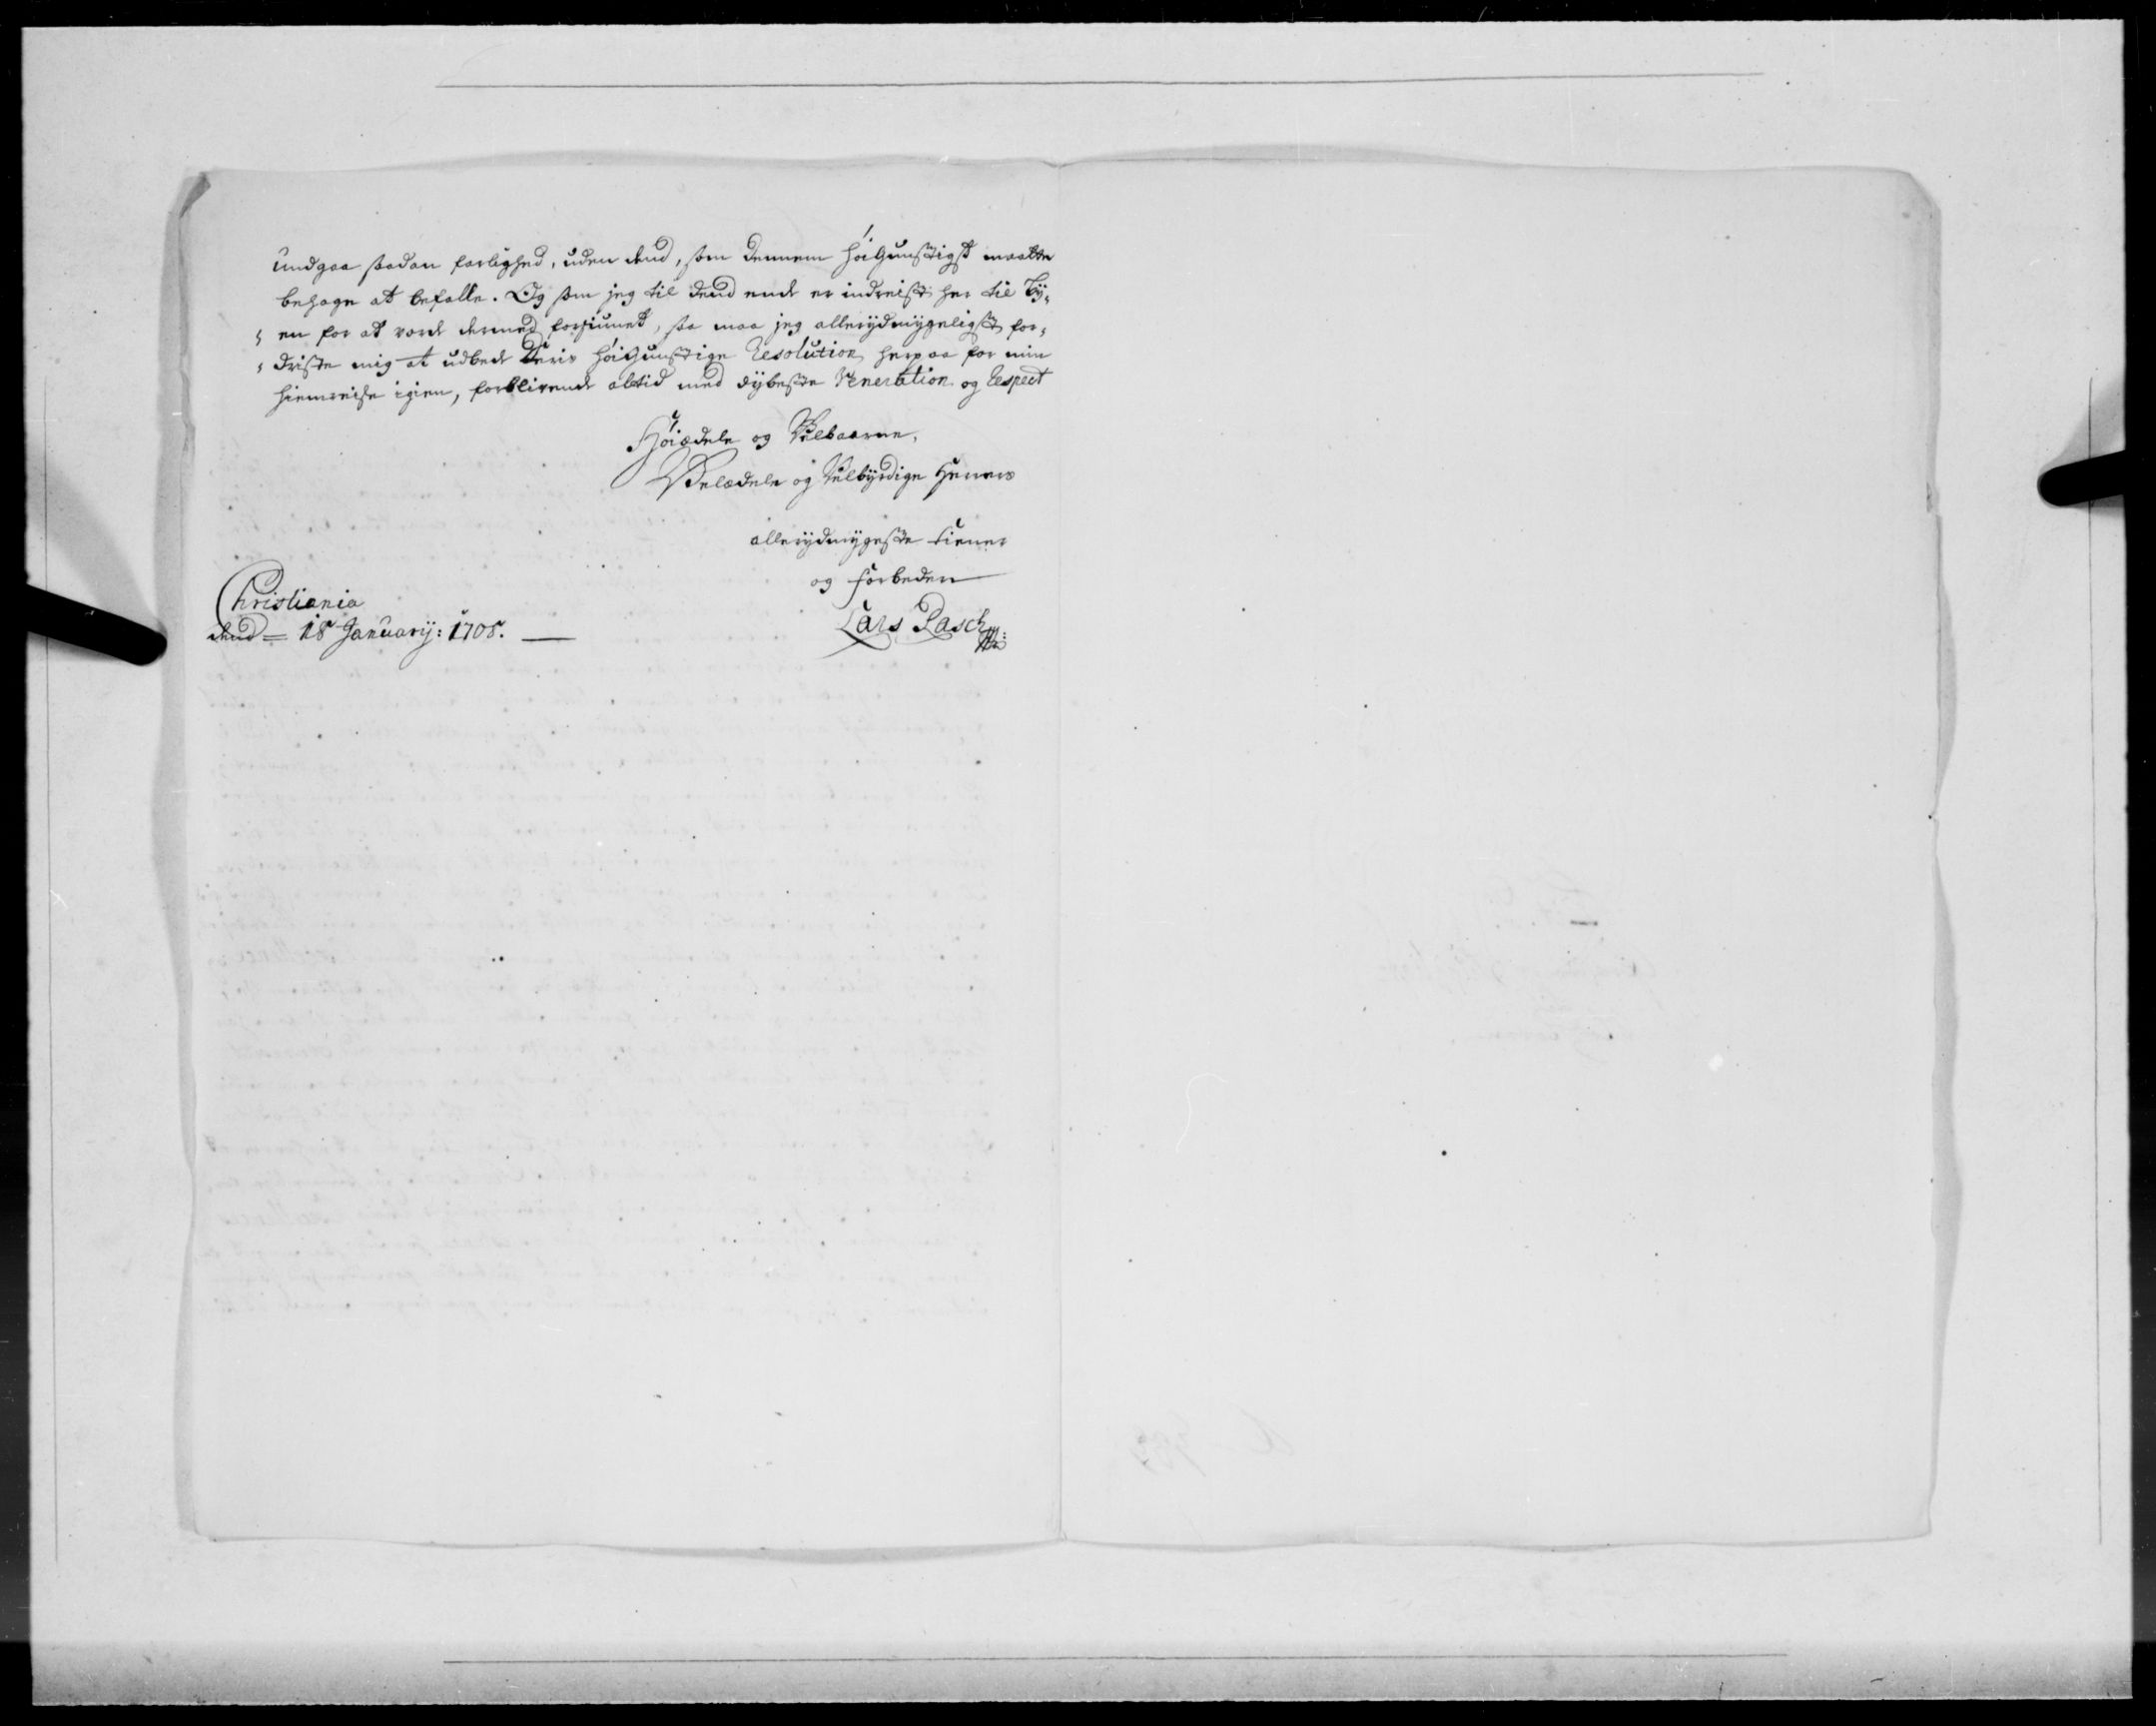 undgaa saadan farlighed, uden dend, som dennem høigunstigst maatte
behage at befalle. Og som jeg til dend ende er indreist her til By„
„ en for at vorde dermed forsiunet, saa maa jeg allerydmygeligst for„
„ driste mig at udbede Deris høigunstige Resolution herpaa for min
hiemreise igien, forblivende altid med dybeste Veneration og Respect
Høiædele og Velbaarne,
Velædele og Velbyrdige Herrers
allerydmygeste tiener
og forbeder
Christiania
dend = 18 January: 1705.
Lars Pasch